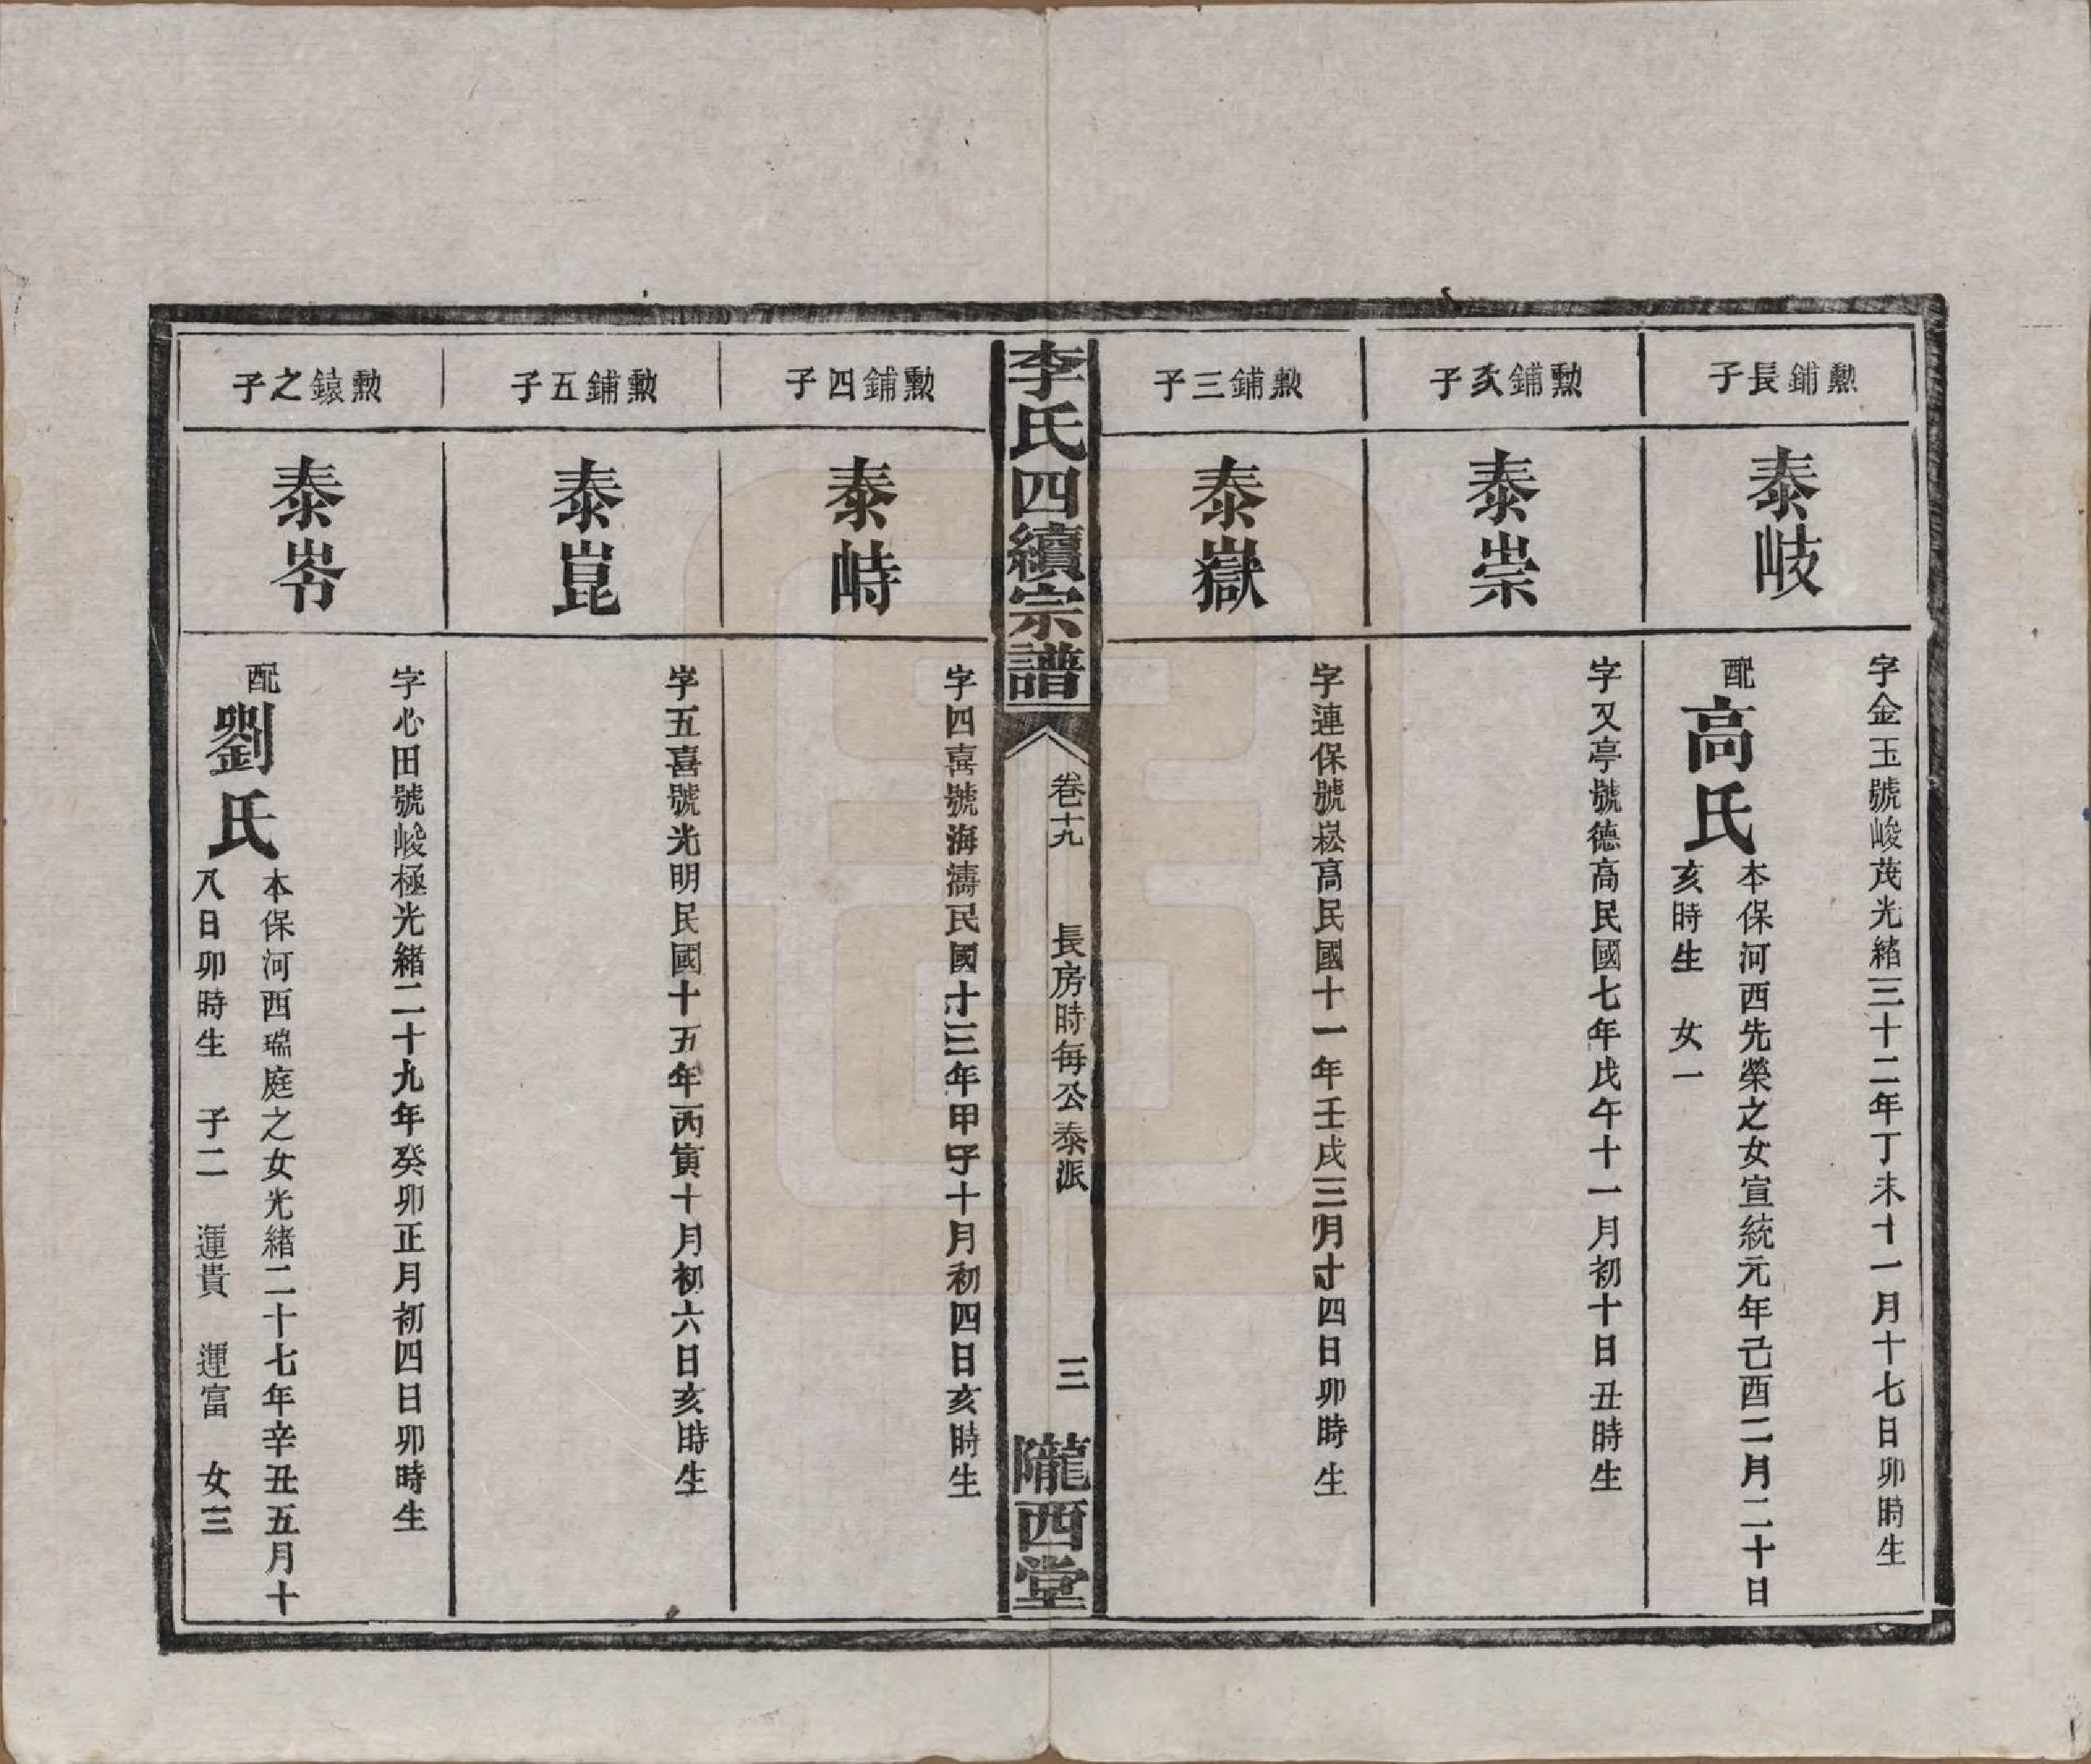 勲鋪長子
泰岐
字金玉號峻茂光緒三十二年丁未十一月十七日卯時生
配高氏
本保河西先榮之女宣統元年己酉二月二十日
亥時生　女一
勲鋪次子
泰崇
字又亭號德高民國七年戊午十一月初十日丑時生
勲鋪三子
泰嶽
字連保號崧高民國十一年壬戌三月十四日卯時生
李氏四續宗譜
卷十九
長房時每公泰派
三
隴西堂
勲鋪四子
泰峙
字四喜號海濤民國十三年甲子十月初四日亥時生
勲鋪五子
泰崑
字五喜號光明民國十五年丙寅十月初六日亥時生
勲鎱之子
泰岺
字心田號峻極光緒二十九年癸卯正月初四日卯時生
配劉氏
本保河西瑞庭之女光緒二十七年辛丑五月十
八日卯時生　子二　運貴　運富　女三